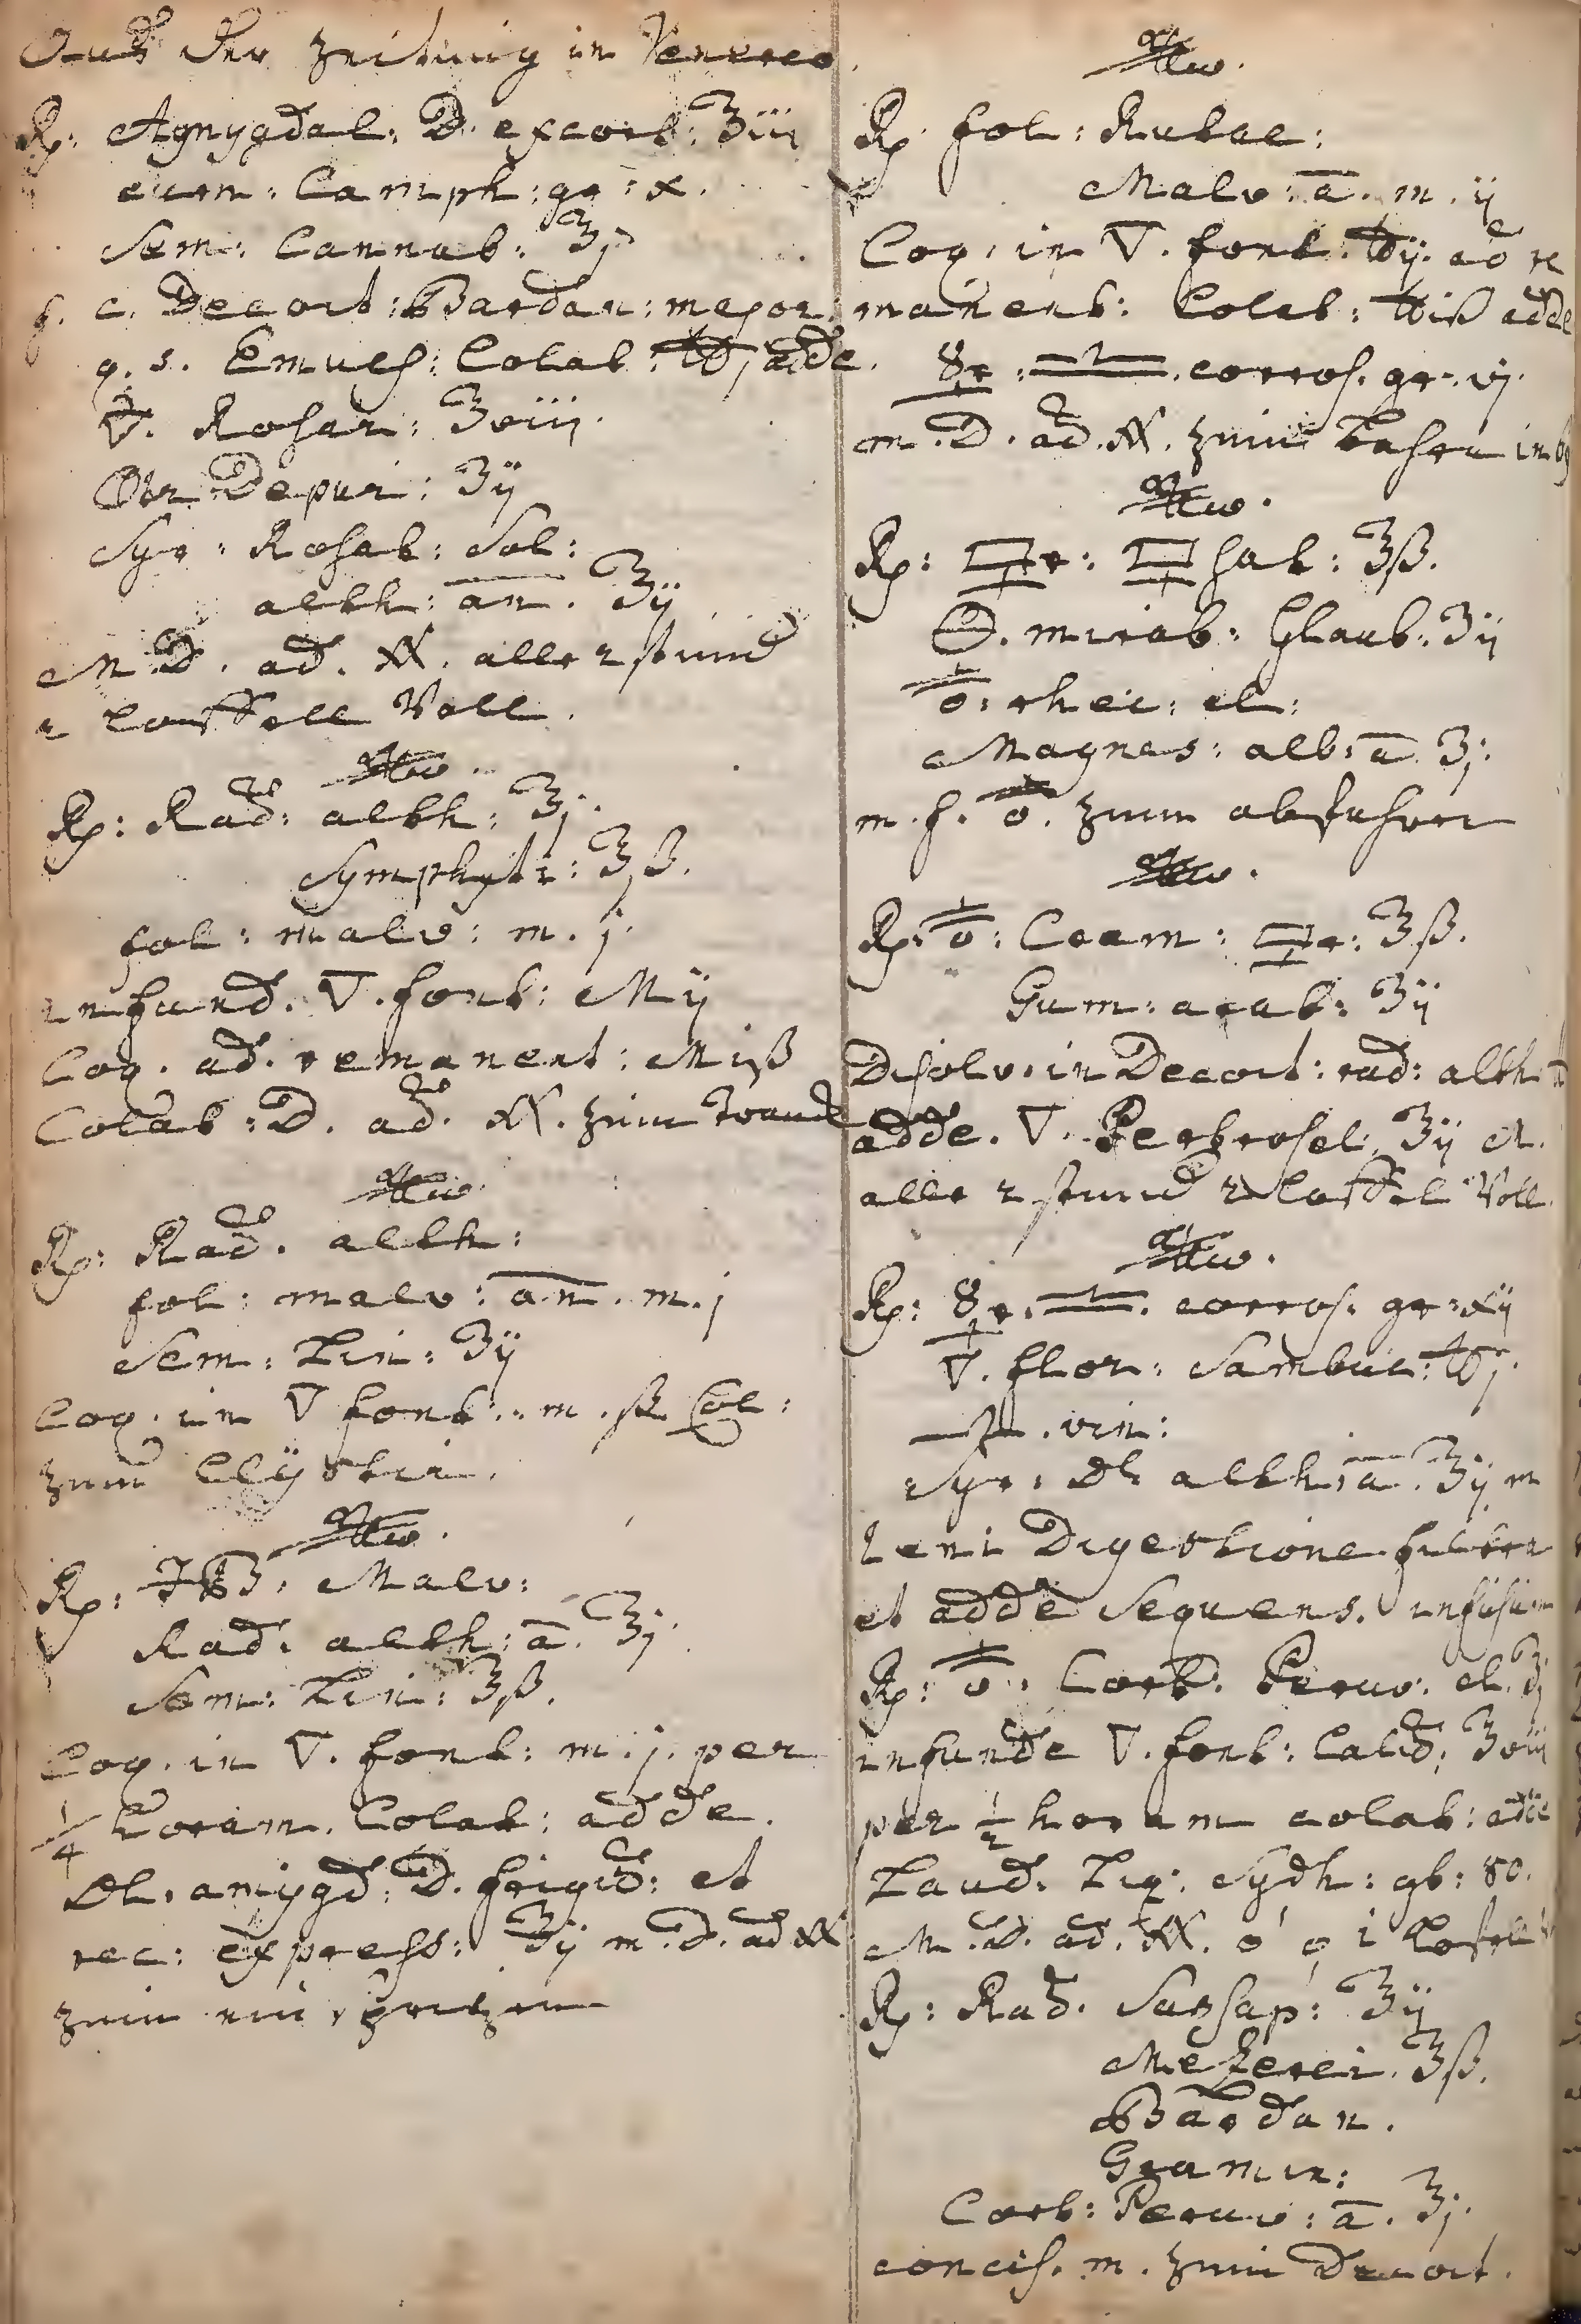 Auß der Zeitung in Venerea.
Rp: Amygdal: D. excort: ℥iij
cum: Camph: gr: x.
Sem: Cannab: ℥j
f. c. Decoct: Bardan: major:
q. s. Emuls: Colat: ℔j adde.
🜄. Rosar: ℥viij.
Depur: ʒij
Syr: Rosat: Sol:
alth: an. ℥ij
M D. ad. alle 2 stund
2 Löffell Voll.
Rp: Rad: alth: ℥j.
Symphyti: ℥ß.
fol: malv: m. j.
infund. 🜄. font: Mij
Coq. ad. remanent: Miß
Colat: D. ad. zum Tranck
Rp: Rad. alth:
fol: malv: an. m. j
Sem: Lin: ʒij
Coq. in 🜄 font: m. ß Col:
zum Clÿstir.
Rp: Malv:
Rad: alth: a. ℥j.
Sem: Lin: ℥ß.
Coq. in 🜄. font: m. j. per
1/4 horam. Colat: adde.
Ol. amygd: D. frigid: et
rec: express: ℥ij m. D. ad
zum ein spritzen
Rp fol: Rutae:
Malv: a. m. ij
Coq. in 🜄. font: ℔ij. ad re
manent: Colat: ℔iß adde
corros. gr. vj.
m. D. ad. zum
Rp: ℥ß.
mirab: Glaub: ʒij
rhei: el:
Magnes: alb: a. ʒj.
m. f. zum abführen
Rp: Cram: ℥ß.
Gum: arab: ʒij
Disolv. in Decoct: rad: alth:
adde. 🜄. Petrosel: ℥ij M.
alle 2 stund 2 Löffel Voll.
Rp: corros. gr: xij
🜄. flor: Sambuc: ℔j.
vin:
Syr: D. alth: a. ℥ij m
leni Digestione filtra
et adde Sequens. infusum
Rp: Cort. Peruv. el. ℥j
infunde 🜄. font: Calid: ℥viij
per 1/2 horam colat: adde
Laud. Liq. Sydh: gt: 80.
M. D. ad. 1
Rp: Rad. Sarsap: ℥ij
Mezerei. ℥ß.
Bardan.
Gramin:
Cort: Peruv: a. ℥j.
concis. m. zum Decoct.